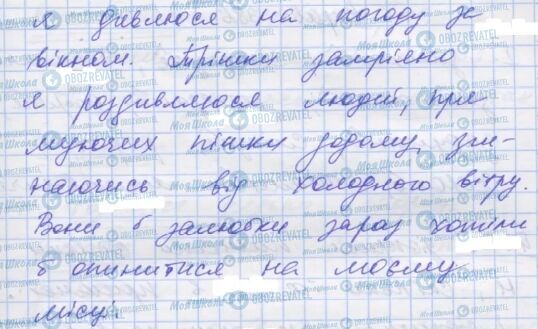 я дивлюся на погоду за
вікном. Трішки замріяно
я роздивляюся людей, пря
муючих пішки додому, зги-
наючись від холодного вітру.
Вони б залюбки зараз хотіли
б опинитися на моєму
місці.